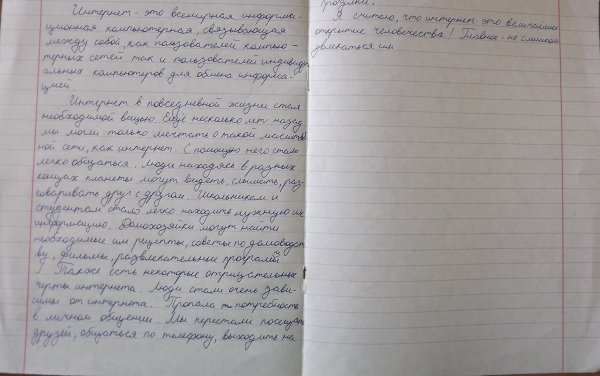 Интернет - это всемирная информа-
ционная компьютерная, связывающая
между собой, как пользователей компью-
терных сетей так и пользователей индивиду
альных компьютеров для обмена информа-
цией.
Интернет в повседневной жизни стал
необходимой вещью. Ещё несколько лет назад
мы могли только мечтать о такой масштаб
ной сети, как интернет. С помощью него стало
легко общаться. Люди находясь в разных
концах планеты могут видеть, слышать, раз-
говаривать друг с другом. Школьникам и
студентам стало легко находить нужную им
информацию. Домохозяйки могут найти
необходимые им рецепты, советы по домоводст
ву, фильмы, развлекательные програмы.
Также есть некоторые отрицательные
черты интернета. Люди стали очень зави-
симы от интернета. Пропала потребность
в личном общении. Мы перестали посещать
друзей, общаться по телефону, выходить на
прогулки.
Я считаю, что интернет это величайшее
открытие человечества! Главное - не слишком
увлекаться им.